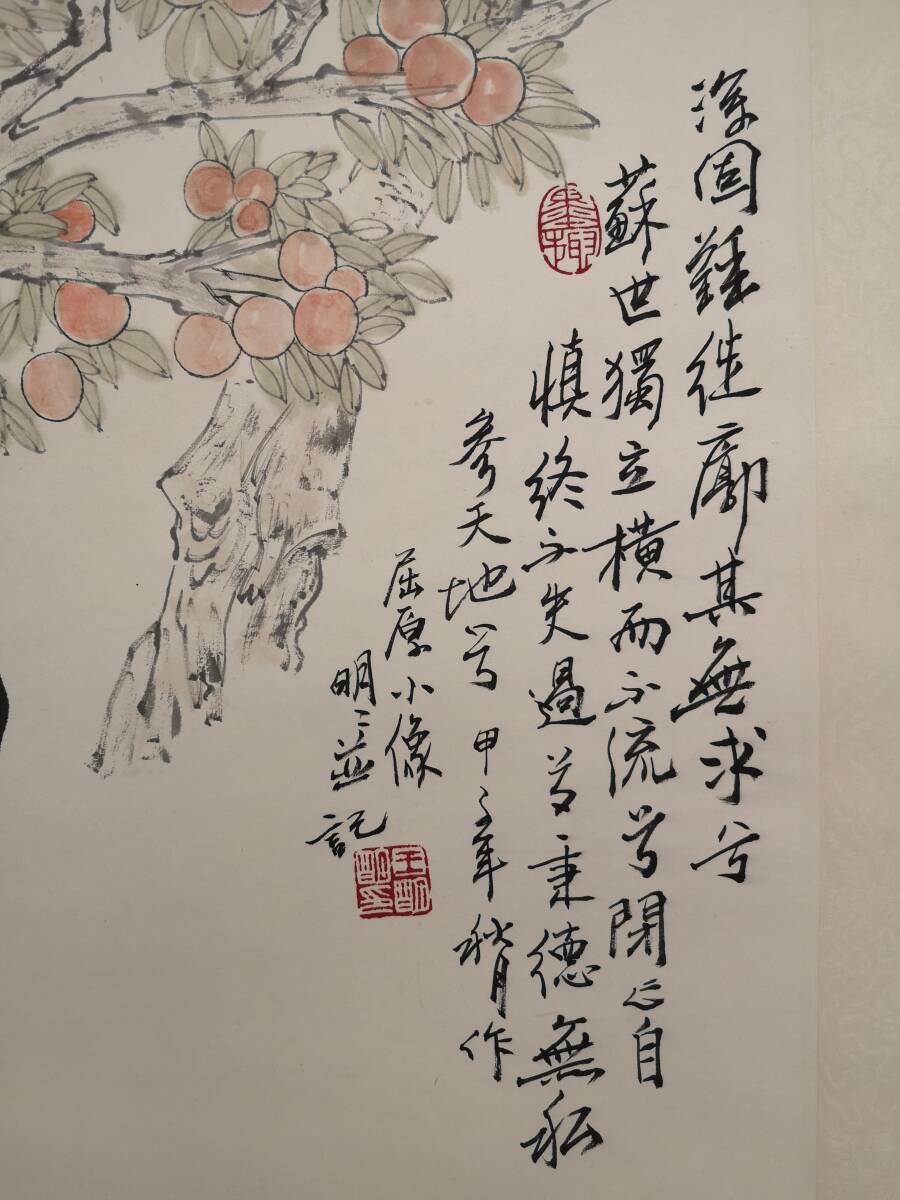 深固難徙廓其無求兮
蘇世獨立橫而不流兮閉心自
慎終不失過兮秉德無私
參天地兮 甲子年秋月作
屈原小像
明明並記
王明明印